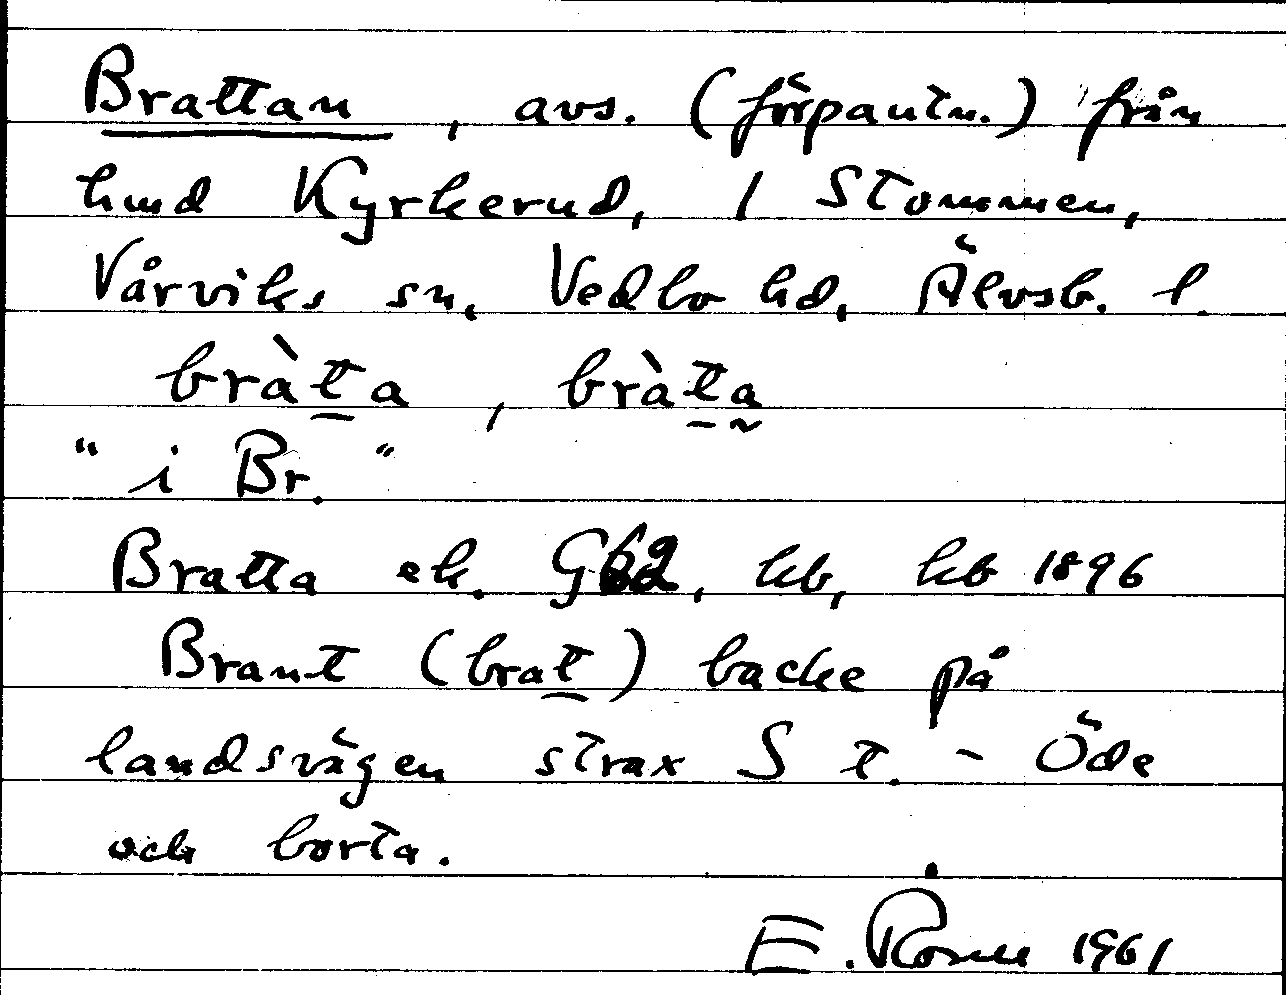 Brattan, avs. (förpantn.) från
hmd Kyrkerud, 1 Stommen,
Vårviks sn, Vedbo hd, Älvsb. l.
bràta, bràta
"i Br."
Bratta ek. G62, kb, hb 1896
Brant (brat) backe på
landsvägen strax S t. - Öde
och borta.
E. Rosell 1961